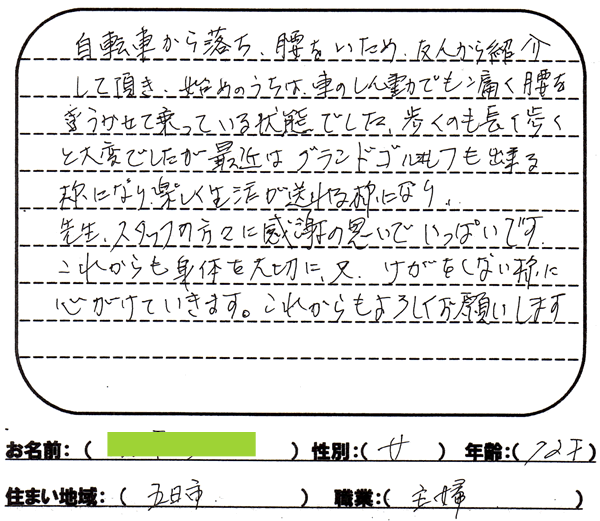 自転車から落ち、腰をいため、友人から紹介
して頂き、始めのうちは、車のしん動でも痛く腰を
うかせて乗っている状態でした、歩くのも長く歩く
と大変でしたが最近はグランドゴルフも出来る
様になり、楽しく生活が送れる様になり、
先生、スタッフの方々に感謝の思いでいっぱいです。
これからも身体を大切に、又、けがをしない様に
心がけていきます。これからもよろしくお願いします
お名前：（ ） 性別：（ 女 ） 年齢：（ 72才）
住まい地域：（ 五日市 ） 職業：（ 主婦 ）